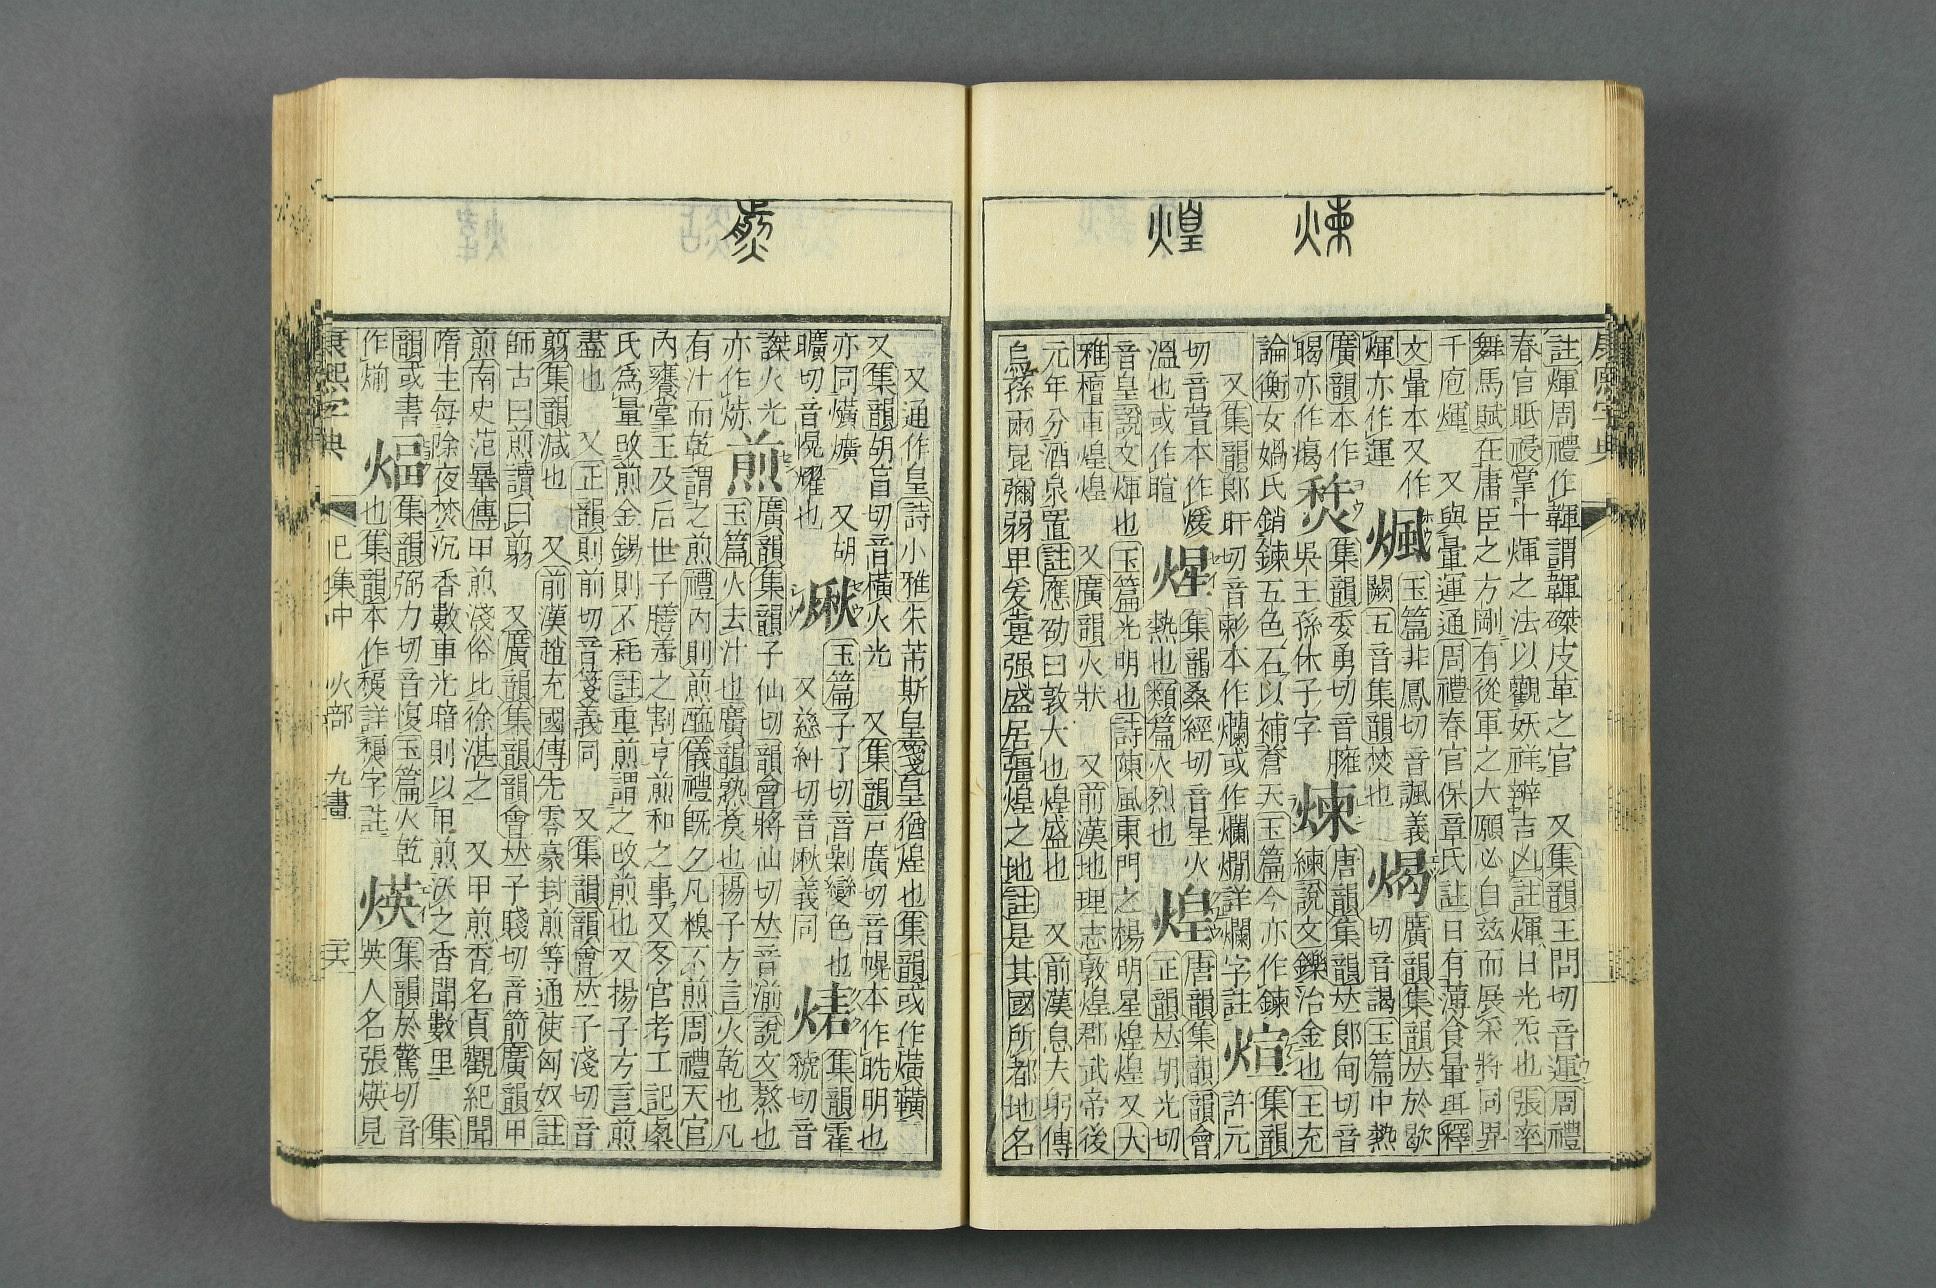 康熙字典
煉
煌
註煇周禮作韗謂韗磔皮革之官 又集韻王問切音運周禮
春官眡祲掌十煇之法以觀妖祥辨吉凶註煇日光炁也張率
舞馬賦在庸臣之方剛有從軍之大願必自兹而展采將同畀
千庖煇 又與暈運通周禮春官保章氏註日有薄食暈珥釋
文暈本又作
煇亦作運
煈
玉篇非鳳切音諷義
闕五音集韻焚也
㷎
廣韻集韻𠀤於歇
切音謁玉篇中熱
廣韻本作
暍亦作𤸎
㷓
集韻委勇切音臃
吳王孫休子字
煉
唐韻集韻𠀤郎甸切音
練說文鑠冶金也王充
論衡女媧氏銷鍊五色石以補蒼天玉篇今亦作鍊
又集韻郎旰切音㪇本作爛或作爤燗詳爛字註
煊
集韻
許元
切音萱本作煖
溫也或作暄
煋
集韻桑經切音星火
熱也類篇火烈也
煌
唐韻集韻韻會
正韻𠀤胡光切
音皇說文煇也玉篇光明也詩陳風東門之楊明星煌煌又大
雅檀車煌煌 又廣韻火狀 又前漢地理志敦煌郡武帝後
元年分酒泉置註應劭曰敦大也煌盛也 又前漢息夫躬傳
烏孫兩昆彌弱卑爰疐强盛居彊煌之地註是其國所都地名
又通作皇詩小雅朱芾斯皇箋皇猶煌也集韻或作熿韹
又集韻胡盲切音橫火光 又集韻戸廣切音幌本作晄明也
亦同熿爌 又胡
曠切音愰燿也
煍
玉篇子了切音剿變色也
又慈糾切音愀義同
㷤
集韻霍
虢切音
謋火光
亦作𤇴
煎
廣韻集韻子仙切韻會將仙切𠀤音湔說文熬也
玉篇火去汁也廣韻熟煑也揚子方言火乾也凡
有汁而乾謂之煎禮內則煎醢儀禮旣夕凡糗不煎周禮天官
內饔掌王及后世子膳羞之割亨煎和之事又冬官考工記㮚
氏爲量改煎金錫則不耗註重煎謂之改煎也又揚子方言煎
盡也 又正韻則前切音箋義同 又集韻韻會𠀤子淺切音
翦集韻減也 又前漢趙充國傳先零豪封煎等通使匈奴註
師古曰煎讀曰翦 又廣韻集韻韻會𠀤子賤切音箭廣韻甲
煎南史范曅傳甲煎淺俗比徐湛之 又甲煎香名貞觀紀聞
隋主每除夜焚沉香數車光暗則以甲煎沃之香聞數里 集
韻或書
作㷙
煏
集韻弼力切音愎玉篇火乾
也集韻本作𥼨詳𥼨字註
煐
集韻於驚切音
英人名張煐見
康熙字典
巳集中 火部 九畫
二十六